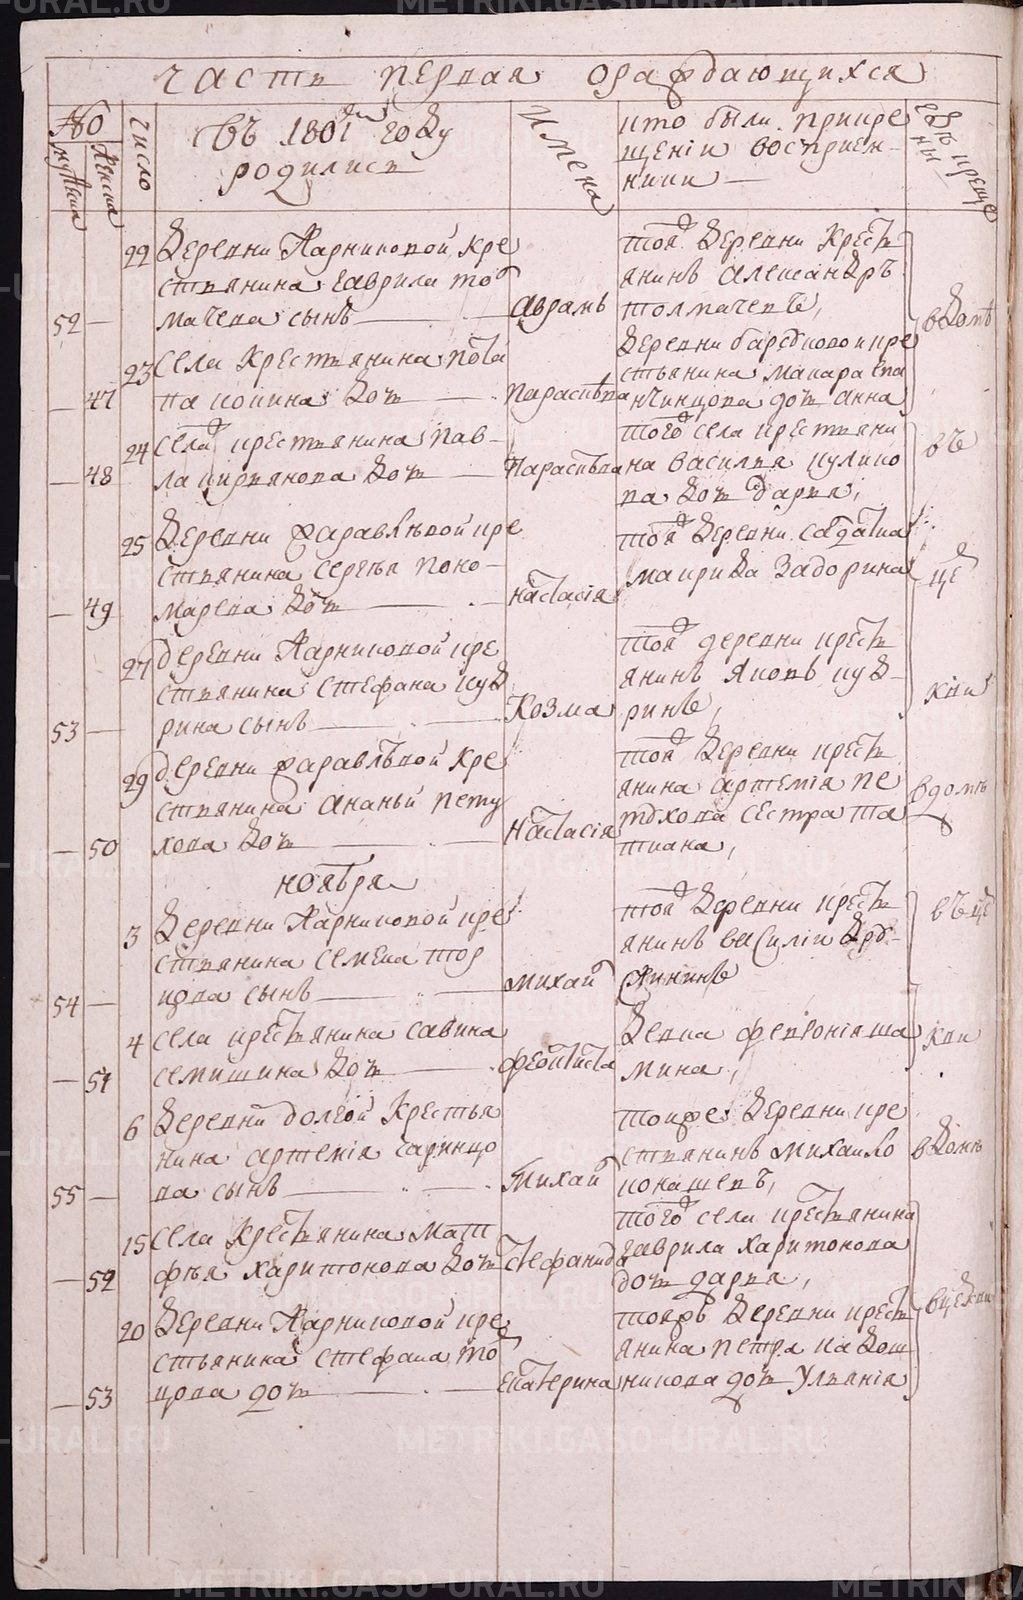 часть первая ораждающихся
№
мужеска
женска
число
въ 1801м году
родились
имена
кто были прикре
щеніи восприем-
ники
гдѣ креще
ны
52 —
22
деревни Парниковой кре
стьянина Гаврила тол
мачева сынъ
Аврамъ
той деревни крест
янинъ Александръ
толмачевъ,
в домѣ
— 47
23
села крестьянина пота
па попина доч
Параскева
деревни
стьянина Макара
дочь Анна
— 48
24
села крестьянина пав-
ла кирьянова доч
Параскева
того села крестьяни
на Василья кулико
ва доч Дарья,
въ
— 49
25
деревни Харавлѣвой кре
стьянина Сергѣя поно-
марева доч
Настасія
той деревни салдатка
Маврида Задорина
це
53 —
27
деревни Парниковой кре
стьянина Стефана куд
рина сынъ
Козма
той деревни крест
янинъ Яковъ куд-
ринъ,
кви
— 50
29
деревни Харавлѣвой кре
стьянина Ананьи пету
хова доч
Настасія
той деревни крест
янина Артемія пе
тухова сестра Та
тиана,
в домѣ
ноября
54 —
3
деревни Парниковой кре
стьянина Семена тор
цова сынъ
Михаил
той деревни крест
янинъ Василіи
въ це
— 51
4
села крестьянина Савина
семишина доч
Феоктиста
девка Февронія ша
мина,
кви
55 —
6
деревни долгой крестья
нина Артемія
ва сынъ
Михаил
тояже деревни кре
стьянинъ Михаило
в домѣ
— 52
15
села крестьянина Мат
фѣя Харитонова доч
Стефанида
того села крестьянина
Гаврила Харитонова
доч Дарья,
— 53
20
деревни Парниковой кре
стьянина Стефана тор
цова доч
Екатерина
тояжъ деревни крест
янина Петра кадош
никова доч Ульянія
в церкви
METRIKI.GASO-URAL.RU